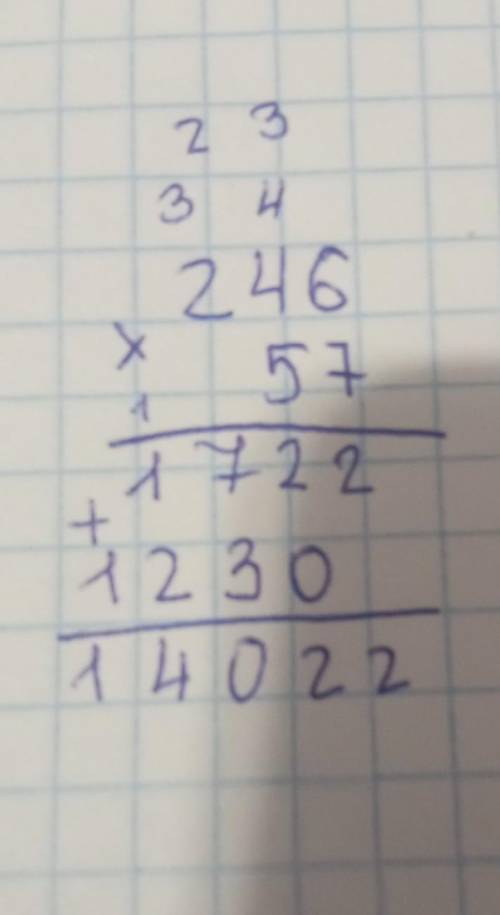 2 3
3 4
246
×
57
1
1722
+
1230
14022